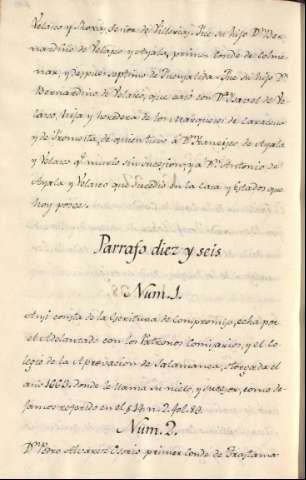 Velasco y Roxas, Señor de Villerias; fue su hijo Dn. Ber-
nardino de Velasco y Ayala, primer Conde de Colme-
nar, y despues septimo de Fuensalida. Fue su hijo Dn.
Bernardino de Velasco, que casó con Da. Isavel de Ve-
lasco, hija y heredera de los Marqueses de
y de Fromista, de quien tuvo a Dn. Francisco de Ayala
y Velasco qe. murió sin subcesion, y a Dn. Antonio de
Ayala y Velasco que sucedió en la casa y estados que
hoy posee.
Parrafo diez y seis
Num. 1.
Aqui consta de la Escritura de compromiso, echa por
el Adelantado con los Patronos Comisarios, y el Co-
legio de la Aprovacion de Salamanca, otorgada el
año 1663, donde le llama su nieto, y sucesor, como de-
jamos referido en el § 14 n. 2. fol. 89.
Num. 2.
Dn. Pedro Alvarez Osorio primer Conde de Trastama